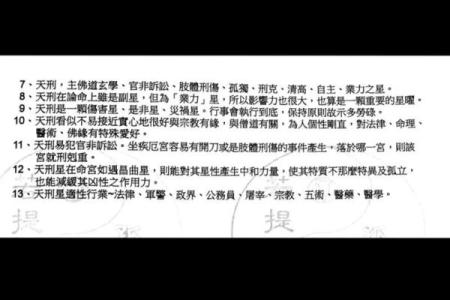 7、天刑，主佛道玄學、官非訴訟、肢體刑傷、孤獨、刑克、清高、自主、業力之星。
8、天刑在論命上雖是副星，但為「業力」星，所以影響力也很大，也算是一顆重要的星曜。
9、天刑是一顆傷害星、是非星、災禍星。行事會執行到底、保持原則故示多勞碌。
10、天刑看似不易接近實心地很好與宗教有緣，與僧道有關，為人個性剛直，對法律、命理、
醫術、佛緣有特殊愛好。
11、天刑易犯官非訴訟。坐疾厄宮容易有開刀或是肢體刑傷的事件產生，落於哪一宮，則該
宮就刑剋重。
12、天刑星在命宮如遇昌曲星，則能對其星性產生中和力量，使其特質不那麼特異及孤立，
也能減緩其凶性之作用力。
13、天刑星適性行業~法律、軍警、政界、公務員、屠宰、宗教、五術、醫藥、醫學。
提
提